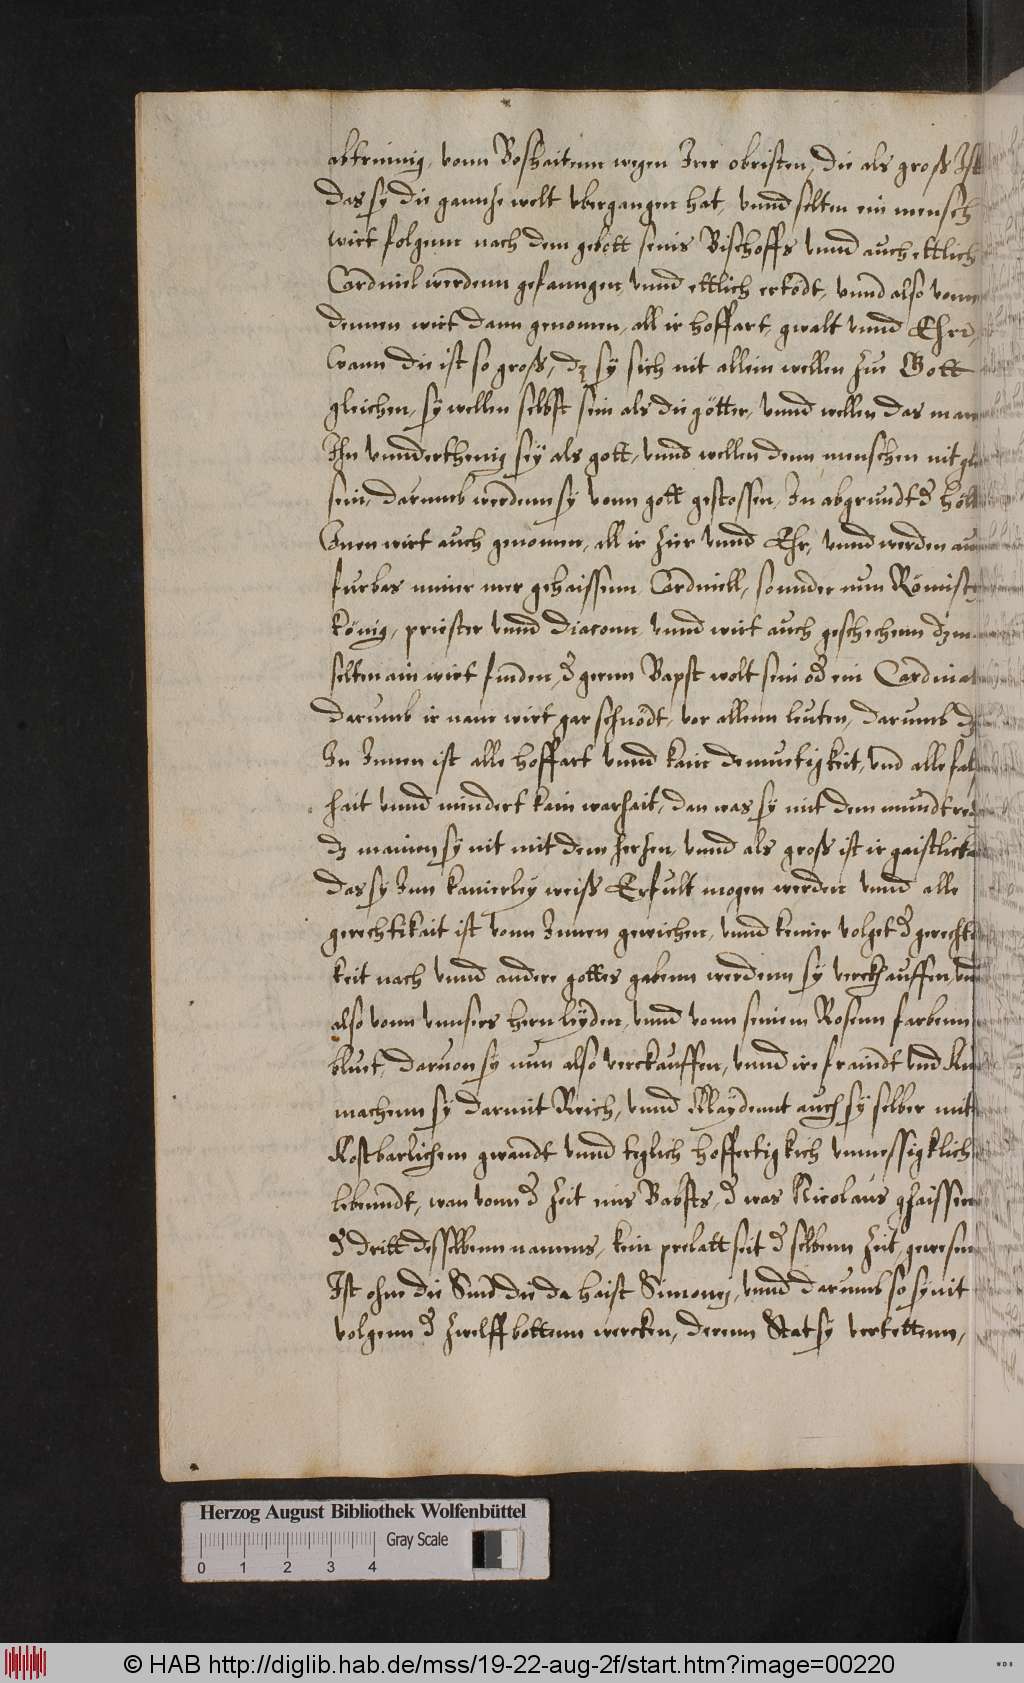 abtrinnig, vonn Boshaitenn wegen Irer obristen, die als groß Ist
das sy die gannze welt vbergangen hat, vnnd selten ein mensch
wirt folgenn nach dem gebott seins Bischoffs vnnd auch ettlich
Cardinel werdenn gefanngen, vnnd ettlich ertödt, vnnd also vonn
dennen wirt dann genomen, all ir hoffart, gwalt vnnd Ehre,
Wann die ist so groß, dz sy sich nit allein wellen zue Gott
gleichen, sy wellen selbst sein als die götter, vnnd wellen das man
Ihn vnnderthenig sey als gott, vnnd wellen denn menschen nit
sein, darumb werdenn sy vonn gott gestossen, In abgrundt d' höll
Innen wirt auch genomen, all ir zier vnnd Ehr, vnnd werden
furbas nimer mer gehaissenn Cardinell, sonnder nun Römisch
könig, priester vnnd Diaconn, vnnd wirt auch geschechenn dz m
selten ain wirt finden, d' gernn Bapst wolt sein od' ein Cardinal
darumb ir nam wirt gar schnödt, vor allenn leuten, darumb dz
In Innen ist alle hoffart vnnd kain demuetigkeit, vnd alle fal
hait vnnd mindert kain warhait, dan was sy mit dem mundt re
dz mainen sy nit mit dem herzen, vnnd als groß ist ir gaistlich
das sy Inn kainerley weiß Erfult mogen werden vnnd alle
gerechtikait ist vonn Innen gewichen, vnnd keiner volget d' gerechti
keit nach vnnd andere gottes gabenn werdenn sy verckhauffen, vnd
also vonn vnnsers hern leyden, vnnd vonn seinem Rosenn farbenn
bluet, daruon sy nun also verckauffen, vnnd ire fraindt vnd
machenn sy darmit Reich, vnnd klaydennt auch sy selber mit
Kostbarlichem gwandt vnnd teglich hoffertigklich vnmessigklich
lebenndt, wan vonn d' zeit eins Babsts, d' was Nicolaus ghaissen
d' dritt desselbenn namens, kein prelatt seit d' selbenn zeit, gewesen
Ist ohne die Sünd die da haist Simoney, vnnd darumb so sy nit
volgenn d' zwelffbottenn wercken, derenn Stat sy vertettenn,
Herzog August Bibliothek Wolfenbüttel
Gray Scale
0 1 2 3 4
© HAB http://diglib.hab.de/mss/19-22-aug-2f/start.htm?image=00220